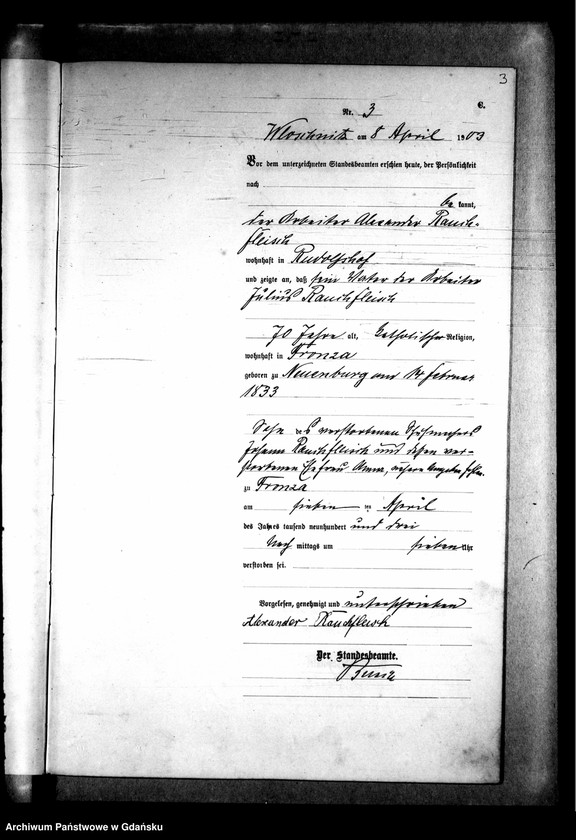 3
C.
Nr. 3
am 8 April 1903
Vor dem unterzeichneten Standesbeamten erschien heute, der Persönlichkeit
nach
be kannt,
der Arbeiter Alexander Rauch-
fleisch
wohnhaft in Rudolfshof
und zeigte an, daß sein Vater der Arbeiter
Julius Rauchfleisch
70 Jahre alt, katholischer Religion,
wohnhaft in Fronza
geboren zu Neuenburg am Februar
1833
Sohn des verstorbenen Schuhmachers
Johann Rauchfleisch und dessen ver-
storbenen Ehefrau Anna, nähere Angaben fehlen
zu Fronza
am sieben ten April
des Jahres tausend neunhundert und drei
Nach mittags um sieben Uhr
verstorben sei.
Vorgelesen, genehmigt und unterschrieben
Alexander Rauchfleisch
Der Standesbeamte.
Archiwum Państwowe w Gdańsku